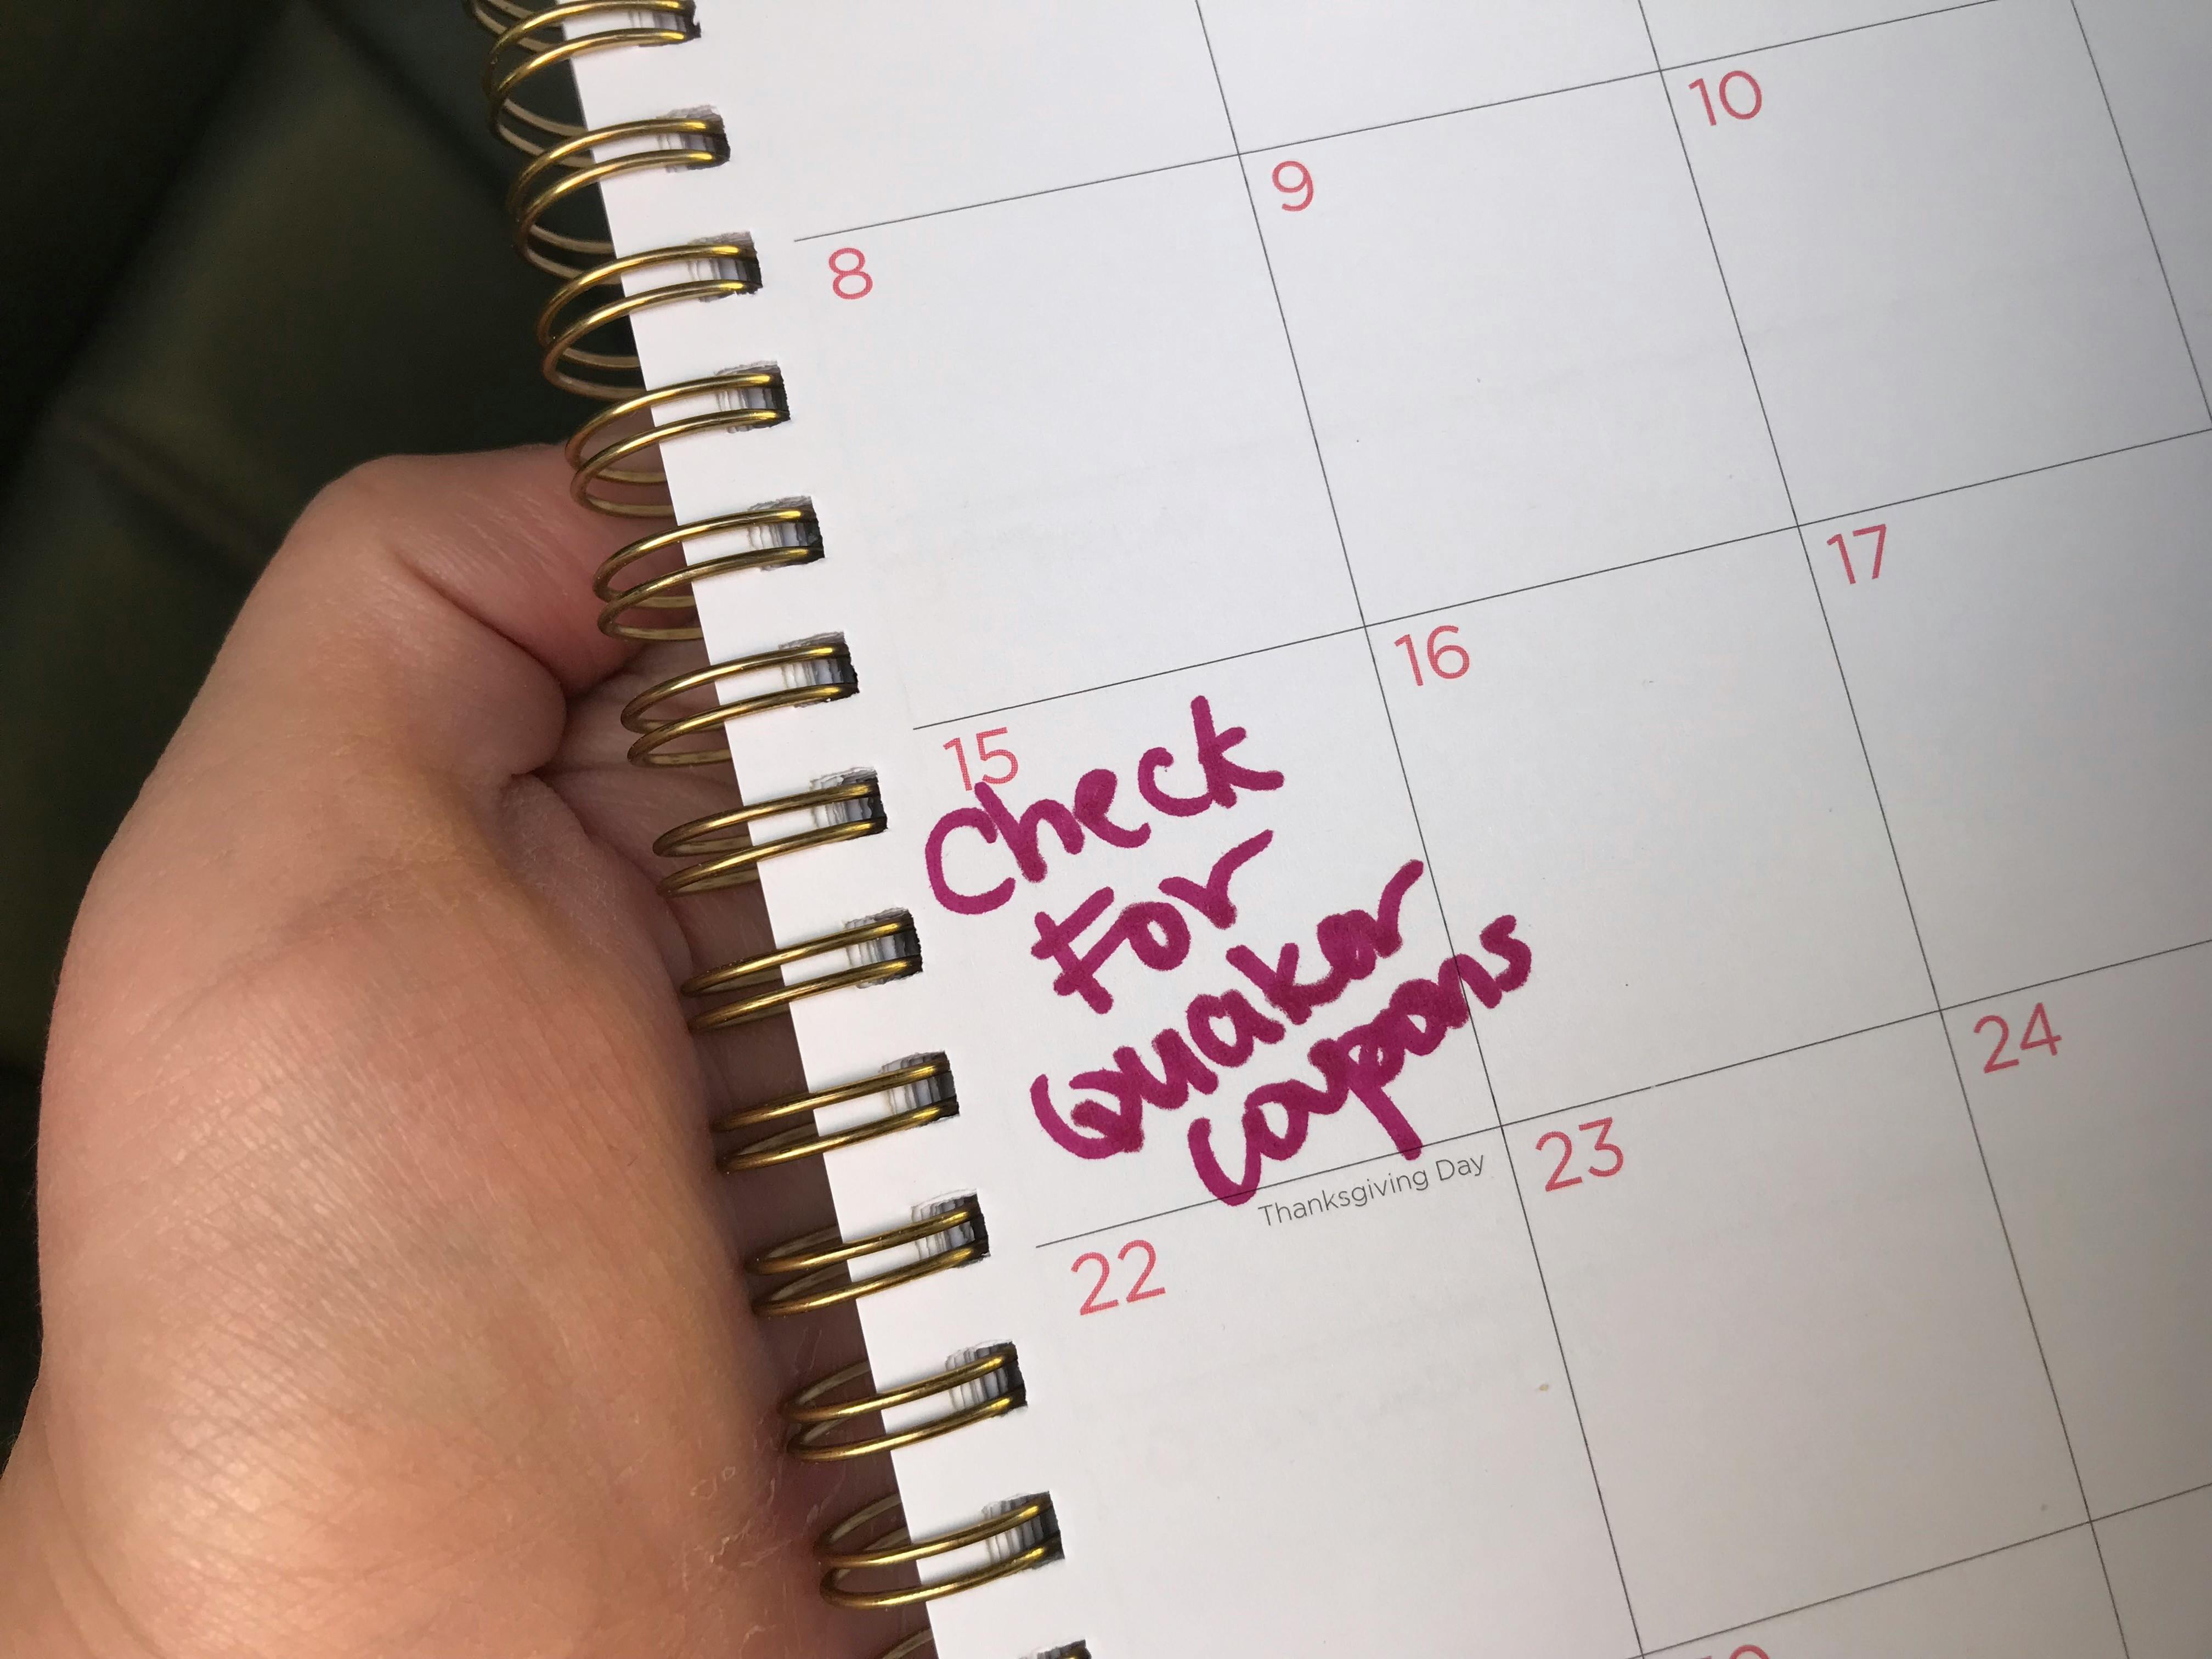 8
9
10
15
16
17
Check
For
Quaker
coupons
Thanksgiving Day
22
23
24